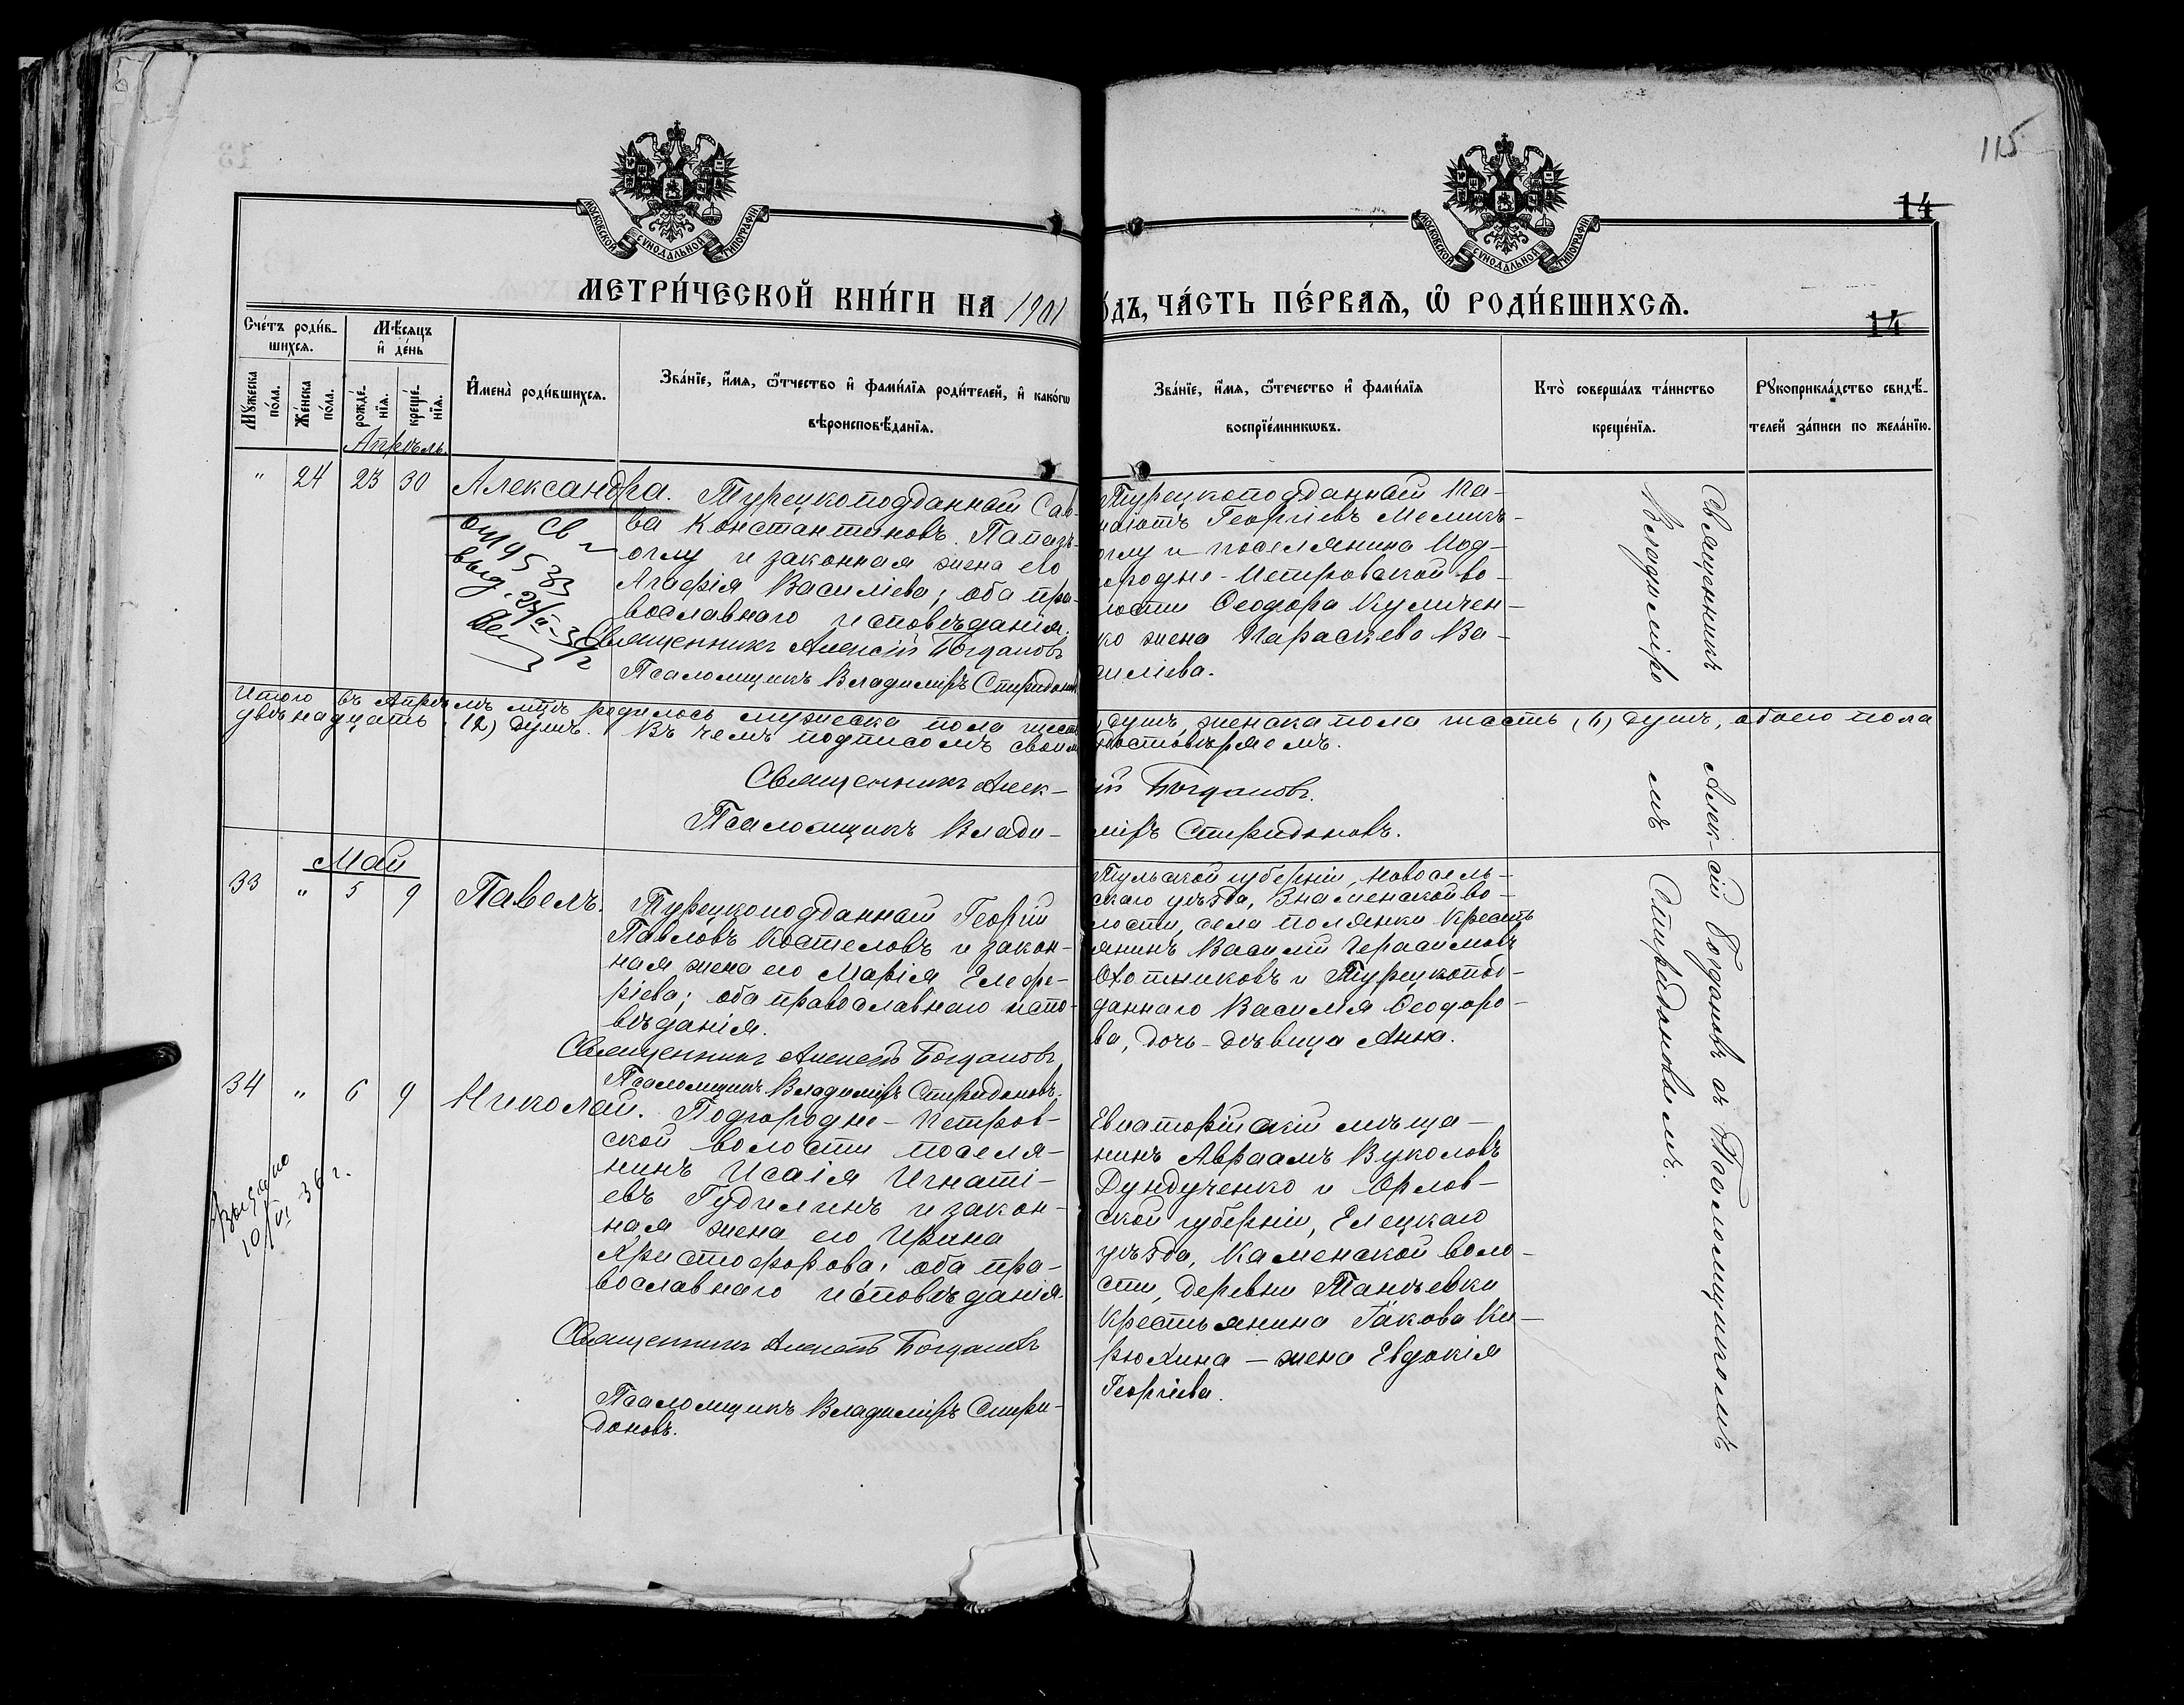 115
14
МОСКОВСКОЙ СѴНОДАЛЬНОЙ ТИПОГРАФІИ
МОСКОВСКОЙ СѴНОДАЛЬНОЙ ТИПОГРАФІИ
МЕТРИ́ЧЕСКОЙ КНИ́ГИ НА 1901
О́ДЪ, ЧА́СТЬ ПЕ́РВАѦ, Ѿ РОДИ́ВШИХСѦ.
14
Сче́тъ роди́в-
шихся.
Мѣ́сяцъ
и҆ де́нь
Мꙋ́жеска по́ла.
Же́нска по́ла.
рожде́-
нїя.
креще́-
нїя.
И҆мена̀ роди́вшихся.
Зва́нїе, и҆́мя, ѻ҆́тчество и҆ фами́лїя роди́телей, и҆ како́гѡ
вѣроисповѣ́данїя.
Зва́нїе, и҆́мя, ѻ҆те́чество и҆ фами́лїя
воспрїе́мникѡвъ.
Кто̀ соверша́лъ та́инство
креще́нїя.
Рꙋкоприкла́дство свидѣ́-
телей за́писи по жела́нїю.
Апрѣль.
" 24 23 30 Александра.
Турецкоподданный Сав-
ва Константиновъ Папазъ-
оглу и законная жена его
Агафія Василіева; оба пра-
вославнаго исповѣданія.
Священникъ Алексій Богдановъ
Псаломщикъ Владиміръ Спиридоновъ
Св
выд.
Турецкоподданный Па-
наіотъ Георгіевъ Мемикъ-
оглу и поселянина Под-
городне-Петровской во-
лости Ѳеодора Куличен-
ко жена Параскева Ва-
силіева.
Священникъ Алексій Богдановъ съ Псаломщикомъ
Владиміромъ Спиридоновымъ.
Итого въ Апрѣлѣ мцѣ родилось мужеска пола шесть душъ, женска пола шесть (6) душъ, обоего пола
двѣнадцать (12) душъ. Въ чемъ подписомъ своимъ удостовѣряемъ.
Священникъ Алек- ій Богдановъ.
Псаломщикъ Влади- міръ Спиридоновъ.
Май
33 " 5 9 Павелъ.
Турецкоподданный Георгій
Павловъ Костеловъ и закон-
ная жена его Марія Елефе-
ріева; оба православнаго испо-
вѣданія.
Священникъ Алексій Богдановъ
Псаломщикъ Владиміръ Спиридоновъ.
Тульской губерніи, Новосель-
скаго уѣзда, Знаменской во-
лости, села Полянки крест
янинъ Василій Герасимовъ
Охотниковъ и Турецкопод-
даннаго Василія Ѳеодоро-
ва, дочь-дѣвица Анна.
34 " 6 9 Николай.
Подгородне-Петров-
ской волости поселя-
нинъ Исаія Игнаті-
евъ Гудилинъ и закон-
ная жена его Ирина
Христофорова; оба пра-
вославнаго исповѣданія.
Священникъ Алексій Богдановъ
Псаломщикъ Владиміръ Спири-
доновъ.
Выдано
10/VI 36 г.
Евпаторійскій мѣща-
нинъ Авраамъ Вуколовъ
Дундученко и Орлов-
ской губерніи, Елецкаго
уѣзда, Каменской воло-
сти, деревни Танѣевки
крестьянина Іакова Ки-
рюхина - жена Евдокія
Георгіева.